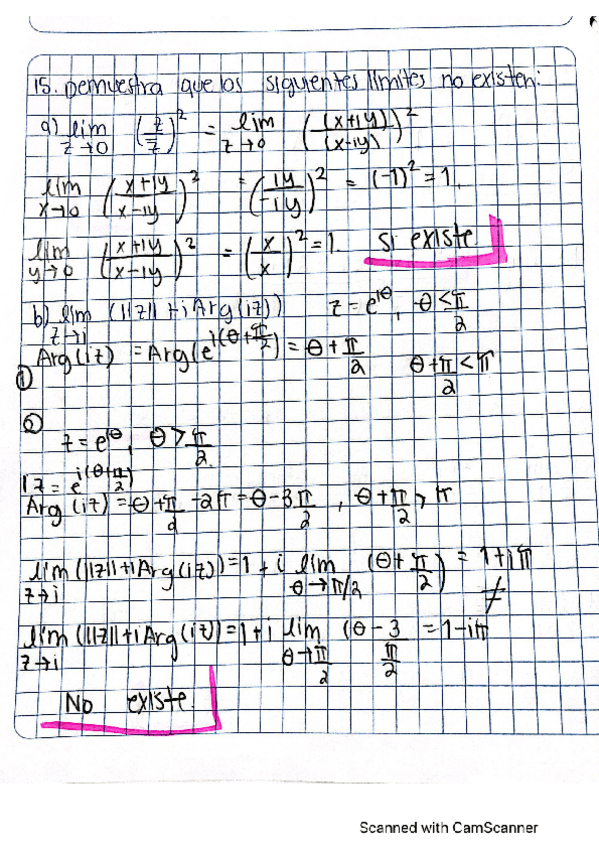 15. Demuestra que los siguientes límites no existen:
a) lim z→0 (z/z̄)² = lim z→0 ((x+iy)/(x-iy))²
lim x→0 (x+iy/x-iy)² = (iy/-iy)² = (-1)² = 1.
lim y→0 (x+iy/x-iy)² = (x/x)² = 1. Si existe
b) lim z→i (||z|| + i Arg(iz)) z = e^iθ, θ < π/2
① Arg(iz) = Arg(e^i(θ+π/2)) = θ + π/2 θ + π/2 < π
②
z = e^iθ, θ > π/2.
iz = e^i(θ+π/2)
Arg(iz) = θ + π/2 - 2π = θ - 3π/2, θ + π/2 > π
lim z→i (||z|| + i Arg(iz)) = 1 + i lim θ→π/2 (θ + π/2) = 1 + iπ
≠
lim z→i (||z|| + i Arg(iz)) = 1 + i lim θ→π/2 (θ - 3 π/2 = 1 - iπ
No existe.
Scanned with CamScanner